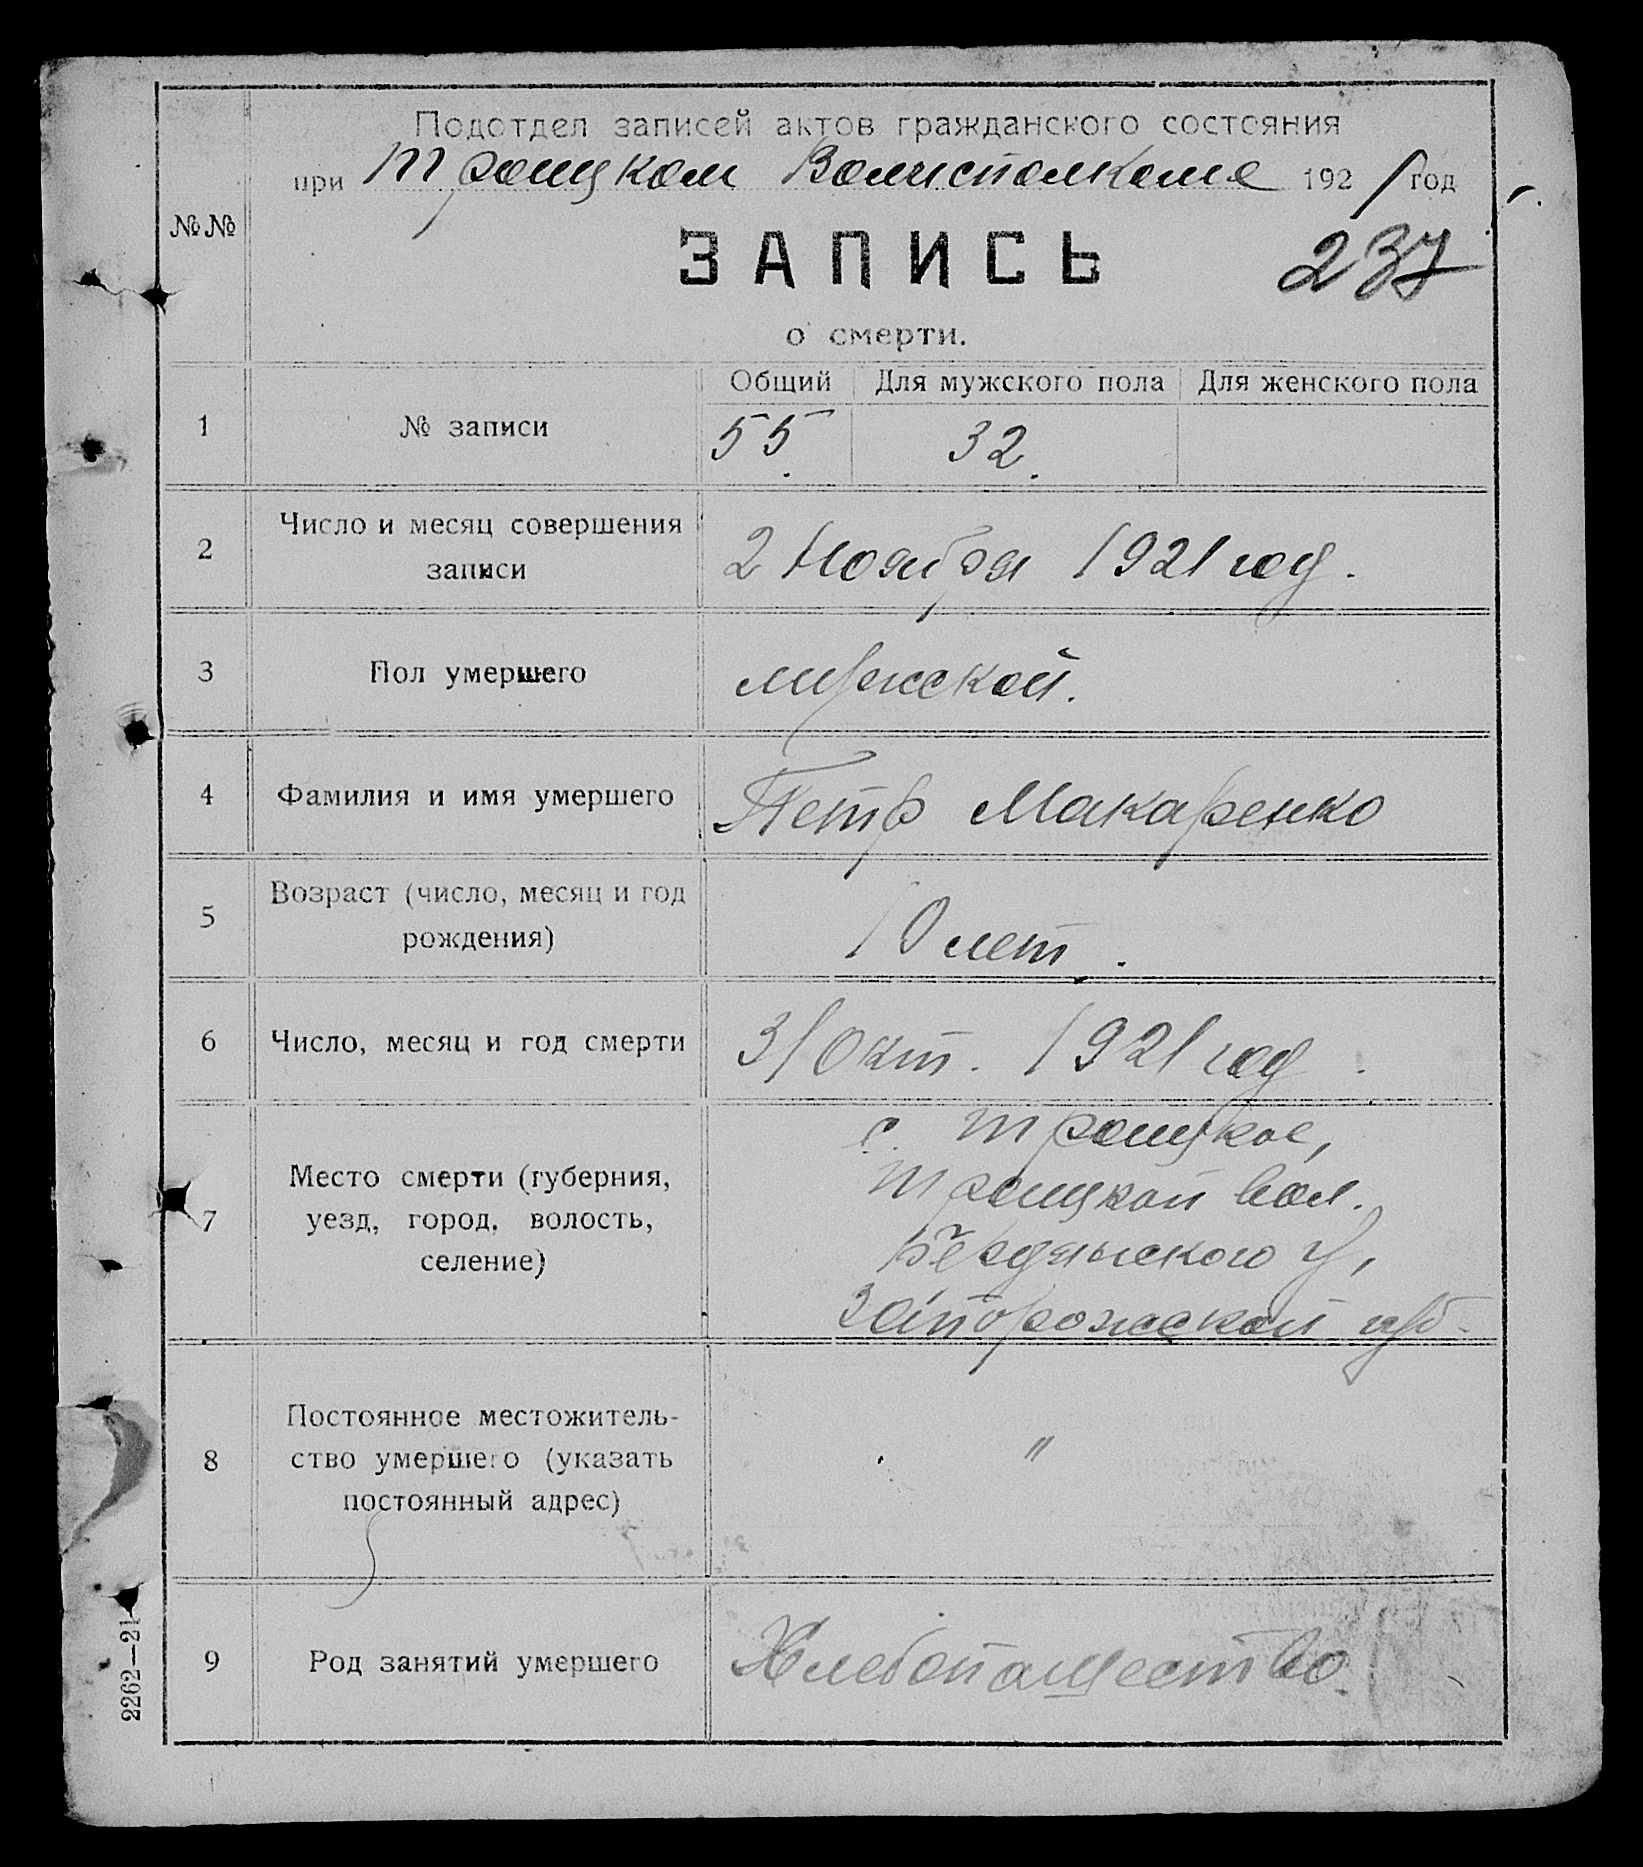 Подотдел записей актов гражданского состояния
при Троицком Волисполкоме 1921 год
№№
ЗАПИСЬ
237
о смерти.
Общий Для мужского пола Для женского пола
1 № записи 55 32
2 Число и месяц совершения записи
2 Ноября 1921 год.
3 Пол умершего мужской.
4 Фамилия и имя умершего Петр Макаренко
5 Возраст (число, месяц и год рождения)
10 лет.
6 Число, месяц и год смерти 31 Окт. 1921 год.
7 Место смерти (губерния, уезд, город, волость, селение)
с. Троицкое,
Троицкой вол.
Бердянского у,
Запорожской губ.
8 Постоянное местожитель-
ство умершего (указать
постоянный адрес)
"
9 Род занятий умершего Хлебопашество.
2262—21